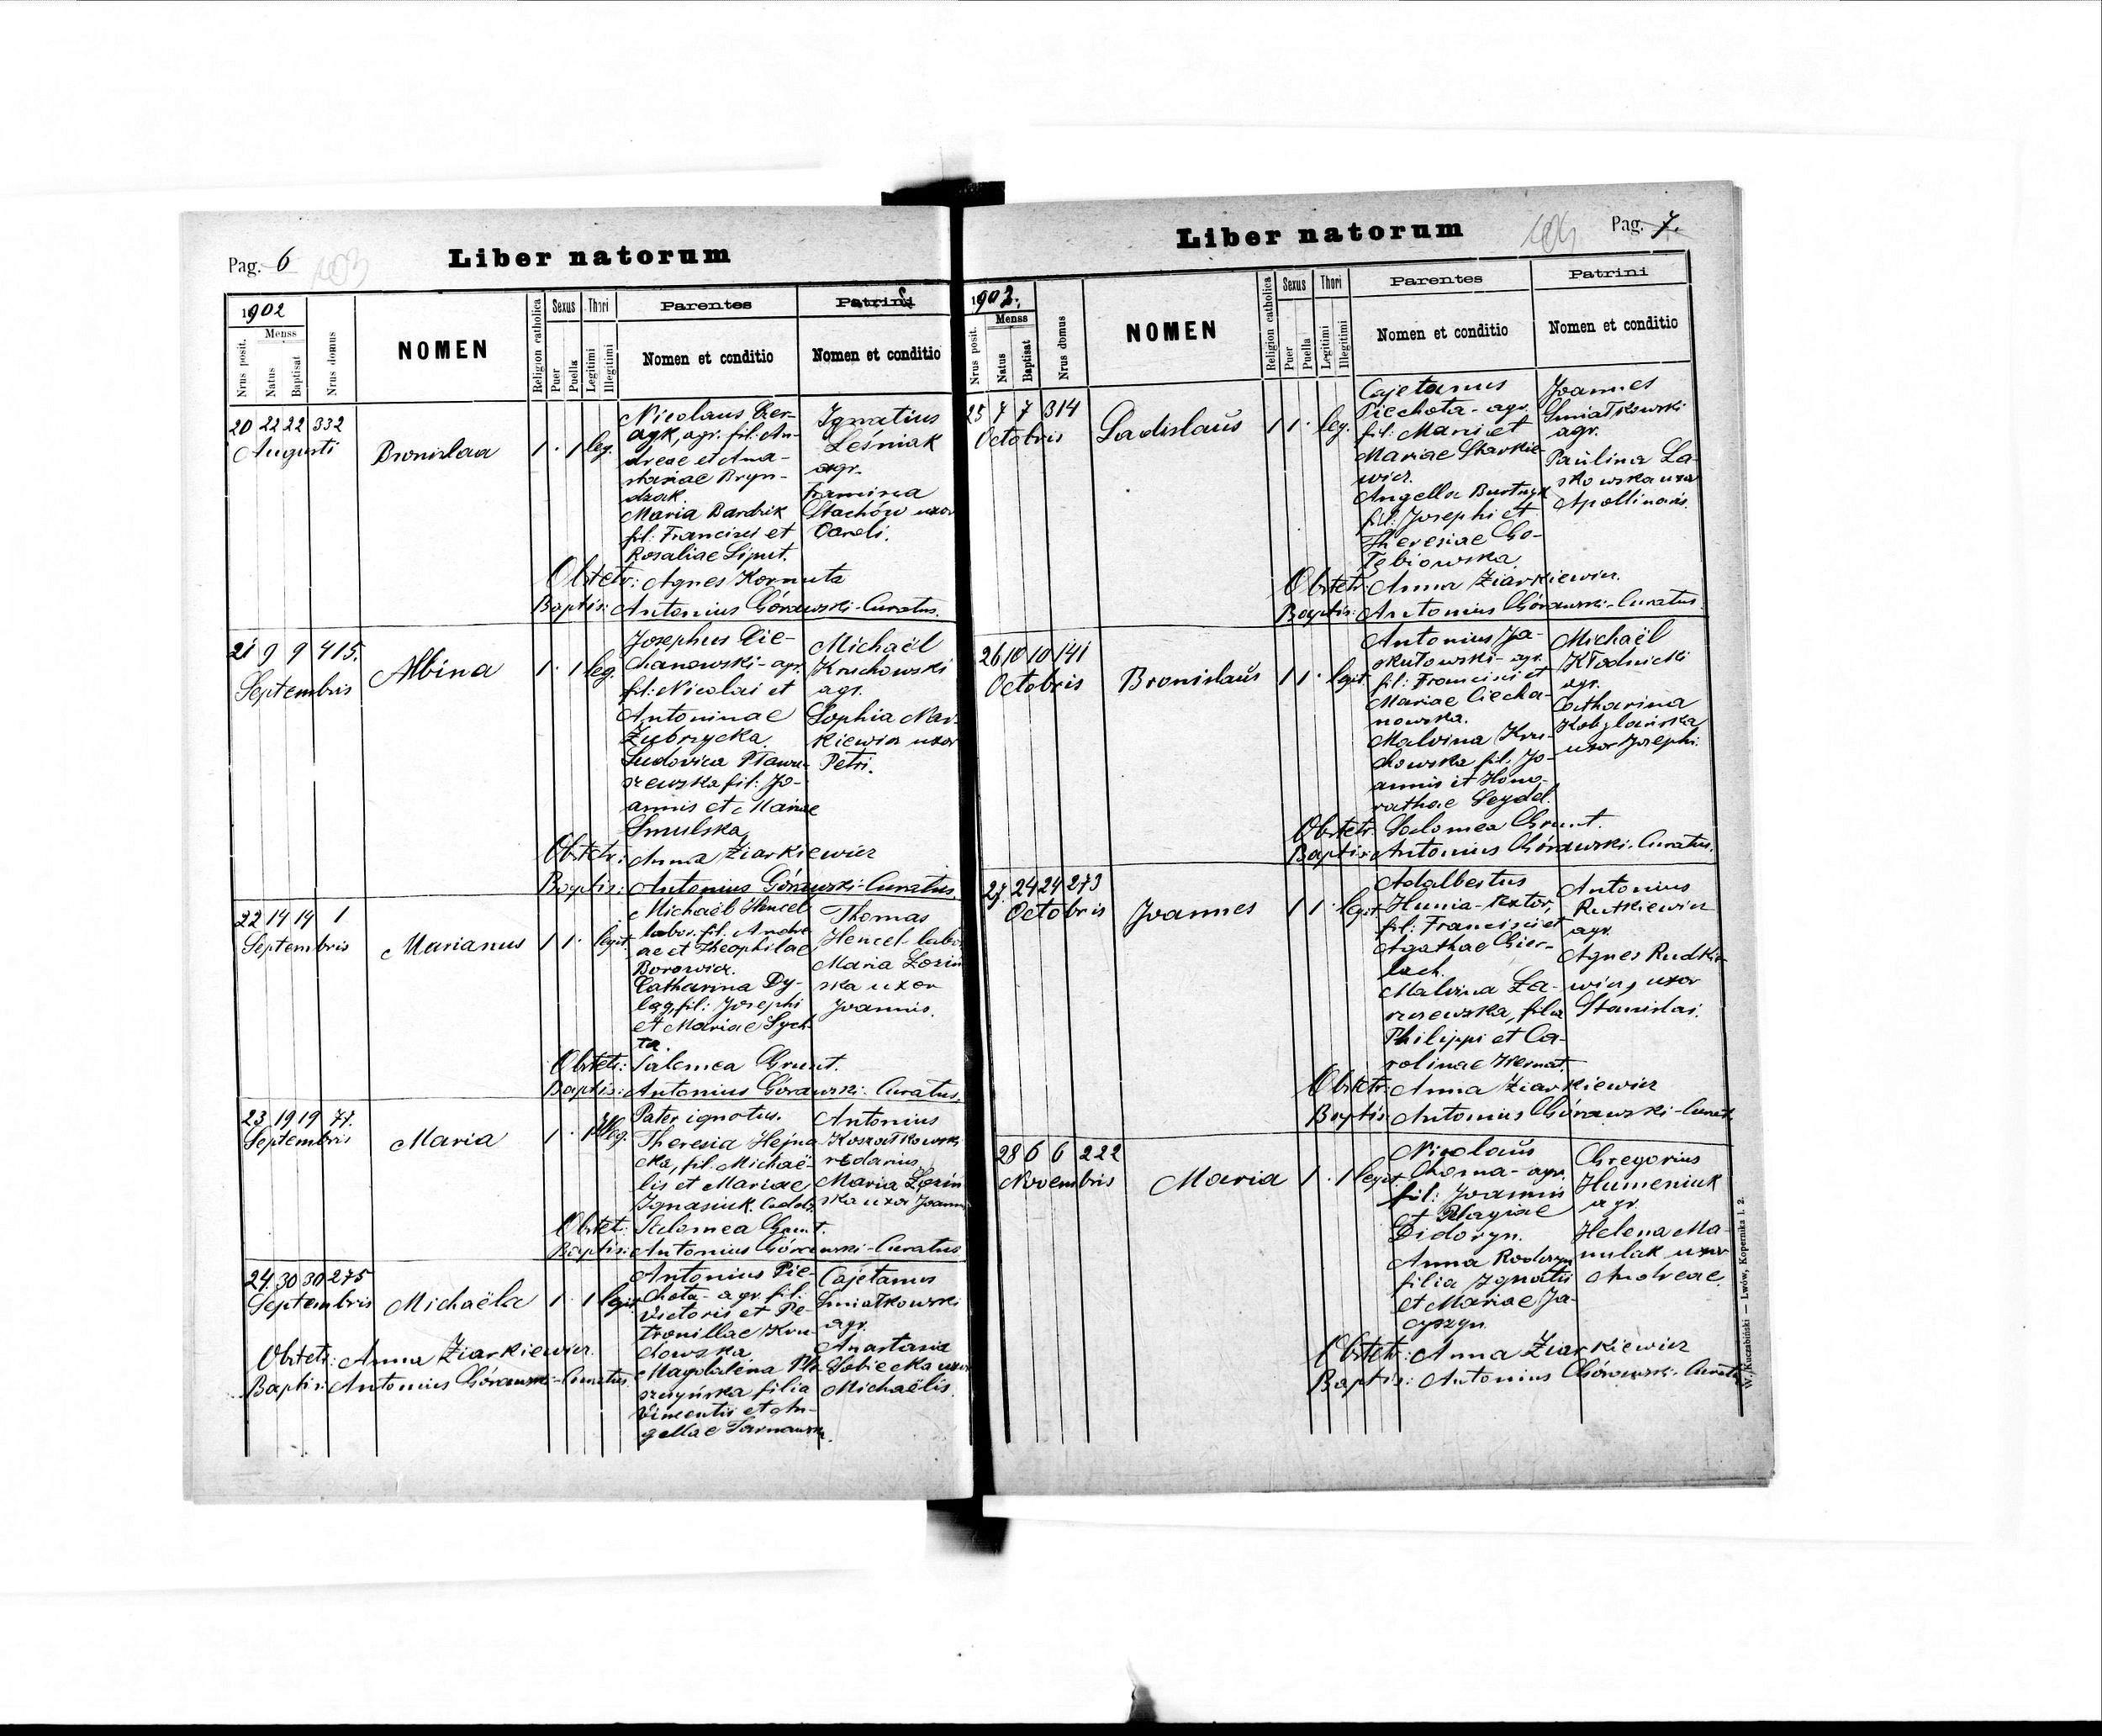 Pag. 6
Liber natorum
1902
Menss
Nrus posit.
Natus
Baptisat
Nrus domus
NOMEN
Religion catholica
Sexus
Puer
Puella
Thori
Legitimi
Illegitimi
Parentes
Nomen et conditio
Patrini
Nomen et conditio
20 22 22 332
Augusti
Bronislaa
1 . 1 leg.
agr. fil. An-
dreae et Ana-
stasiae Bryn-
dzak.
Maria Bardzik
fil: Francisci et
Rosaliae Liput.
Ignatius
Leśniak
agr.
Stachów uxor
Caroli.
Obstetr: Agnes Kornuta
Baptis: Antonius Górawski-Curatus.
21 9 9 415.
Septembris
Albina
1 . 1 leg.
Josephus Cie-
chanowski-agr.
fil: Nicolai et
Antoninae
Zubrzycka.
Ludovica
fil: Jo-
annis et Mariae
Smulska
Michaël
Kruchowski
agr.
Sophia Nar-
kiewicz uxor
Petri.
Obstetr: Anna Ziarkiewicz
Baptis: Antonius Górawski-Curatus.
22 14 14 1
Septembris
Marianus
1 1 . legit.
Michaël Hencel
labor. fil. Andre
ae et Theophilae
Borowicz.
Catharina Dy-
ląg, fil: Josephi
et Mariae Sych-
ta.
Thomas
Hencel-labor
Maria Lozin
ska uxor
Joannis.
Obstetr: Salomea Grunt.
Baptis: Antonius Górawski-Curatus.
23 19 19 77.
Septembris
Maria
1 . 1 Illeg.
Pater ignotus.
Theresia Hejna
cka, fil. Michaë-
lis et Mariae
Ignasiuk.
Antonius
Koszatkowski
Maria Lozin
ska uxor Joannis
Obstet: Salomea Grunt.
Baptis: Antonius Górawski-Curatus
24. 30 30 275
Septembris
Michaëla
1 . 1 legit.
Antonius Pie-
chota-agr. fil:
Victoris et Pe-
tronillae Kru-
chowska
Magdalena
filia
Vincentii et An-
gellae Tarnawska.
Cajetanus
Smiatkowski
agr.
Anastasia
Sobiecka uxor
Michaëlis.
Obstetr: Anna Ziarkiewicz.
Baptis: Antonius Górawski-Curatus.
Liber natorum
Pag. 7.
1902.
Menss
Nrus posit.
Natus
Baptisat
Nrus domus
NOMEN
Religion catholica
Sexus
Puer
Puella
Thori
Legitimi
Illegitimi
Parentes
Nomen et conditio
Patrini
Nomen et conditio
25 7 7 314
Octobris
Ladislaŭs
1 1 . leg.
Cajetanus
Piechota-agr.
fil: Marci et
Mariae Starkie-
wicz.
Angella
fil: Josephi et
Theresiae Go-
łębiowska.
Joannes
Smiatkowski
agr.
Paulina La-
skowska uxor
Apollinaris.
Obstetr: Anna Ziarkiewicz.
Baptis: Antonius Górawski-Curatus
26 10 10 141
Octobris
Bronislaŭs
1 1 . legit.
Antonius Ja-
skułowski-agr.
fil: Francisci et
Mariae Ciecha-
nowska.
Malvina Kru-
chowska fil. Jo-
annis et Hono-
rathae Seydel.
Michaël
Kłodnicki
agr.
Catharina
Kobylańska
uxor Josephi.
Obstetr. Salomea Grunt.
Baptis: Antonius Górawski-Curatus.
27. 24 24 273
Octobris
Joannes
1 1 . legit.
Adalbertus
Hunia-textor,
fil: Francisci et
Agathae Gier-
lach.
Malvina
filia
Philippi et Ca-
rolinae
Antonius
Rutkiewicz
agr.
Agnes Rudkie-
wicz, uxor
Stanislai.
Obstetr: Anna Ziarkiewicz
Baptis: Antonius Górawski-Curat.
28 6 6 222
Novembris
Maria
1 . 1 legit.
Nicolaŭs
Choma-agr.
fil: Joannis
et Pelagiae
Didoryn.
Anna
filia Ignatii
et Mariae Ja-
cyszyn.
Gregorius
Humeniuk
agr.
Helena Ma-
nulak uxor
Andreae.
Obstetr: Anna Ziarkiewicz
Baptis: Antonius Górawski-Curatus
W. Kuczabiński — Lwów, Kopernika l. 2.